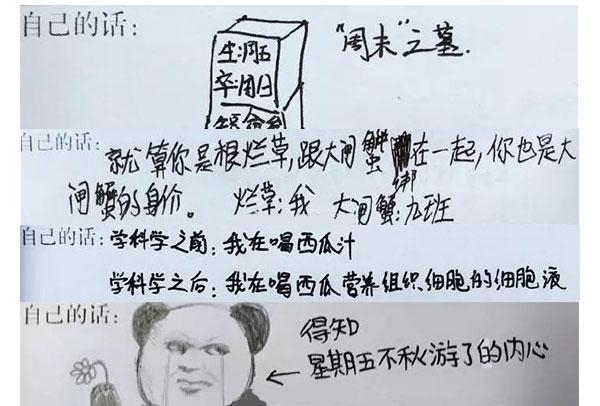 自己的话:
生:周五
卒:周日
"周末"之墓.
自己的话:
就算你是根烂草,跟大闸蟹绑在一起,你也是大
闸蟹的身价。 烂草:我 大闸蟹:九班
自己的话:
学科学之前:我在喝西瓜汁
学科学之后:我在喝西瓜营养组织细胞的细胞液
自己的话:
得知
星期五不秋游了的内心